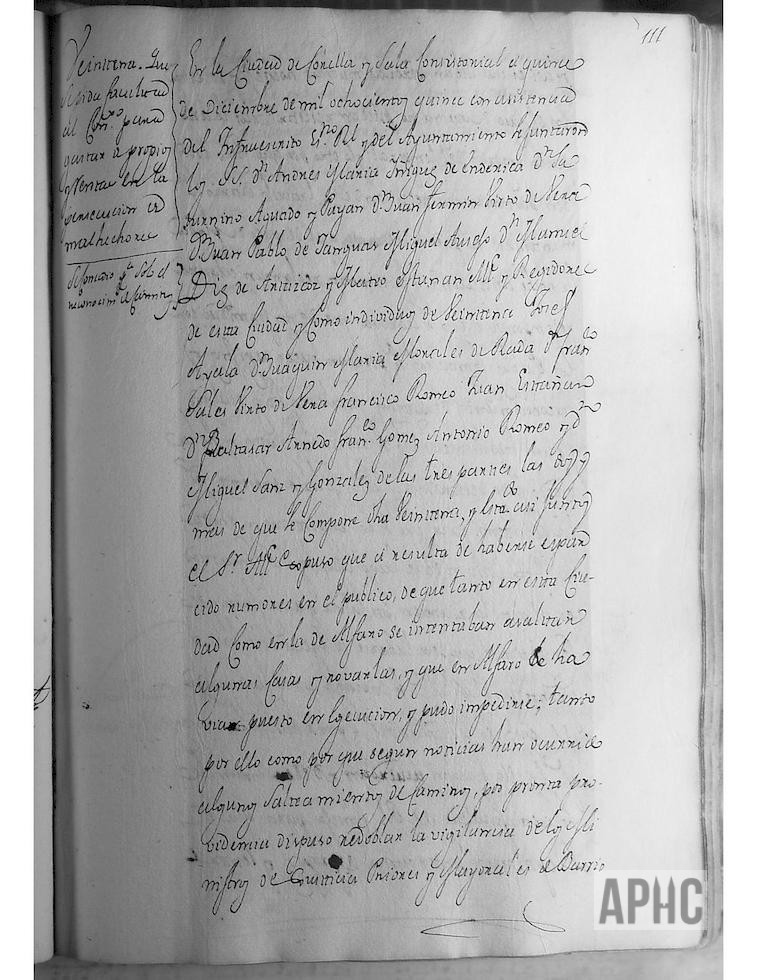 111
Veintena. Que
se pida facultad
al Con.º para
gastar de propios
y Rentas en la
persecucion de
malhechores
Se
reconocim.to de Caminos
En la Ciudad de Corella y Sala Consistorial a quince
de Diciembre de mil ochocientos quince con asistencia
del Infraescrito Es.no Rl y del Ayuntamiento se juntaron
los SS. Dn. Andres Maria Iñiguez de Dn. Sa
turnino Aguado y Payan Dn. Juan fermin Virto de Vera
Dn. Juan Pablo de Miguel Dn. Manuel
Diez de y Mateo Alc.e y Regidores
de esta Ciudad y Como individuos de Veintena Josef
Ayala Dn. Joaquin Maria Morales de Rada Dn. fran.co
Sales Virto de Vera francisco Romeo Juan Estañan
Dn. Baltasar Arnedo fran.co Gomez Antonio Romeo y Dn.
Miguel Sanz y Gonzalez de las tres partes las dos y
mas de que se Compone dha Veintena, y estando asi juntos
el Sr. Alc.e Espuso que a resulta de haberse espar
cido rumores en el publico, de que tanto en esta Ciu-
dad Como en la de Alfaro se intentaban asaltar
algunas Casas y rovarlas, y que en Alfaro se ha
via puesto en Egecucion, y pudo impedirse; tanto
por ello como por que segun noticias han ocurrido
algunos Salteamientos de Caminos, por pronta pro-
videncia dispuso redoblar la vigilancia de los Mi
nistros de Justicia Priores y Mayorales de Barrio
APHC